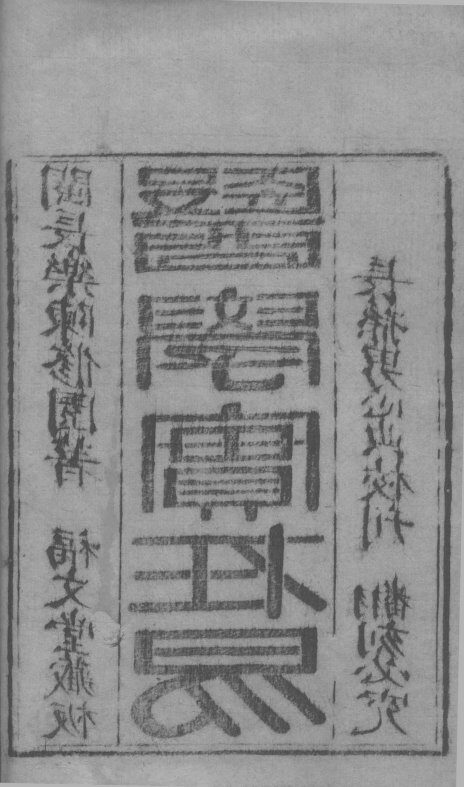 閩長樂陳修園著 福文堂藏板
醫學實在易
長孫男心典校刊 翻刻必究